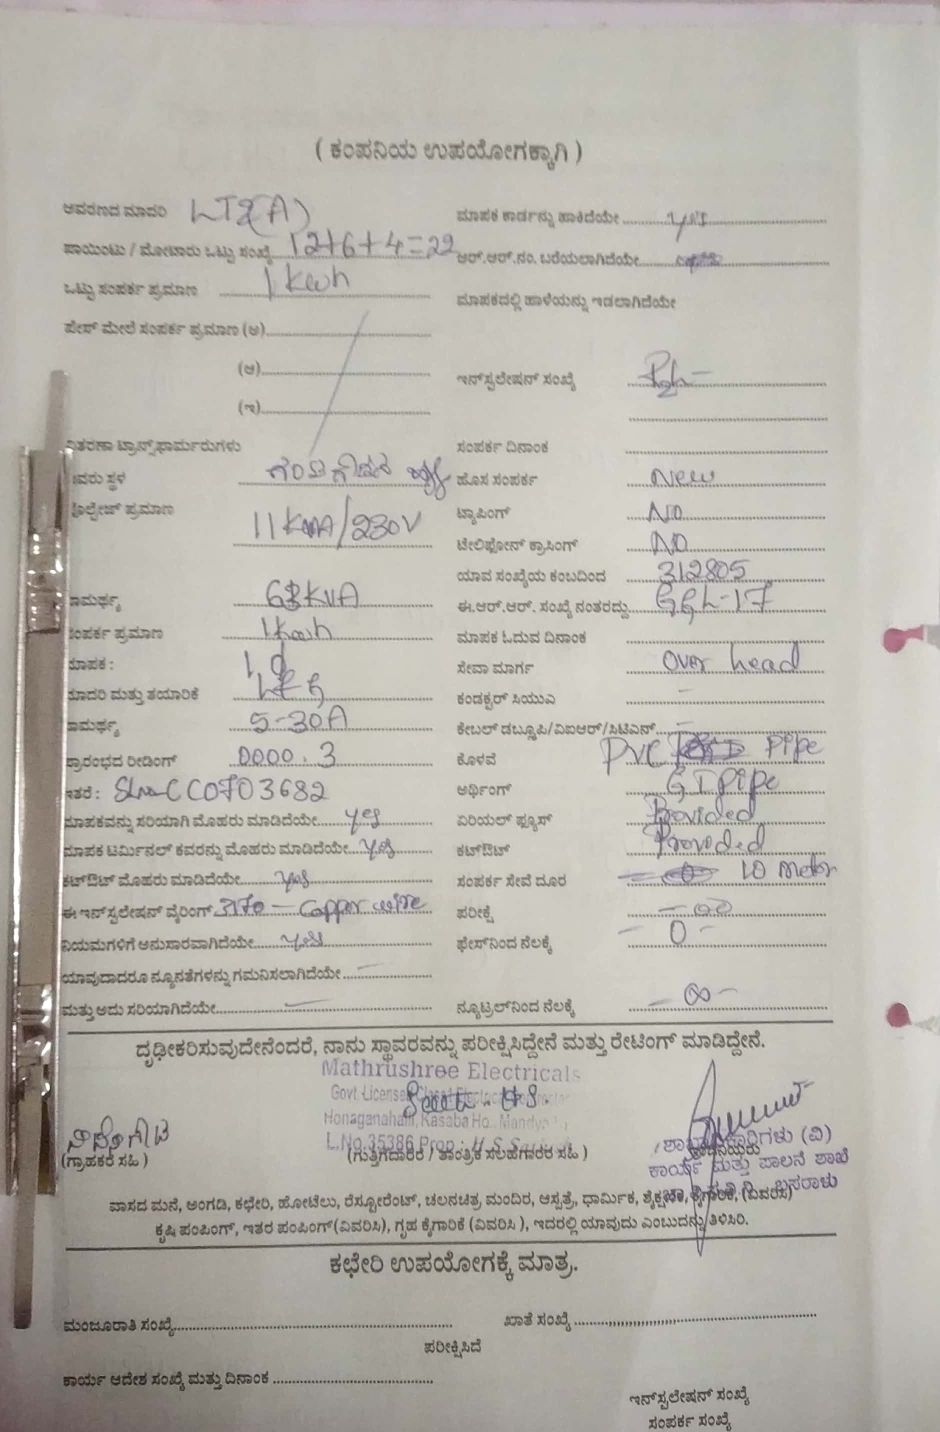 ( ಕಂಪನಿಯ ಉಪಯೋಗಕ್ಕಾಗಿ )
ಆವರಣದ ಮಾದರಿ LT2(A)
ಮಾಪಕ ಕಾರ್ಡನ್ನು ಹಾಕಿದೆಯೇ yes
ಪಾಯಿಂಟು / ಮೋಟಾರು ಒಟ್ಟು ಸಂಖ್ಯೆ 12+6+4=22
ಆರ್.ಆರ್.ನಂ. ಬರೆಯಲಾಗಿದೆಯೇ
ಒಟ್ಟು ಸಂಪರ್ಕ ಪ್ರಮಾಣ 1 Kwh
ಮಾಪಕದಲ್ಲಿ ಹಾಳೆಯನ್ನು ಇಡಲಾಗಿದೆಯೇ
ಪೇಸ್ ಮೇಲೆ ಸಂಪರ್ಕ ಪ್ರಮಾಣ (ಅ)
(ಆ)
ಇನ್‌ಸ್ಟಲೇಷನ್ ಸಂಖ್ಯೆ
(ಇ)
ವಿತರಣಾ ಟ್ರಾನ್ಸ್‌ಫಾರ್ಮರುಗಳು
ಸಂಪರ್ಕ ದಿನಾಂಕ
ಸ್ಥಳ
ಹೊಸ ಸಂಪರ್ಕ New
ಪ್ರಮಾಣ /230V
ಟ್ಯಾಪಿಂಗ್ NO
ಟೇಲಿಫೋನ್ ಕ್ರಾಸಿಂಗ್ NO
ಯಾವ ಸಂಖ್ಯೆಯ ಕಂಬದಿಂದ 312805
63KVA
ಈ.ಆರ್.ಆರ್. ಸಂಖ್ಯೆ ನಂತರದ್ದು GGL-17
ಸಂಪರ್ಕ ಪ್ರಮಾಣ 1Kwh
ಮಾಪಕ ಓದುವ ದಿನಾಂಕ
ಮಾಪಕ :
ಸೇವಾ ಮಾರ್ಗ Over head
ಮಾದರಿ ಮತ್ತು ತಯಾರಿಕೆ
ಕಂಡಕ್ಟರ್ ಸಿಯುಎ -
5-30A
ಕೇಬಲ್ ಡಬ್ಲ್ಯೂಪಿ/ವಿಐಆರ್/ಸಿಟಿಎಸ್ -
ಪ್ರಾರಂಭದ ರೀಡಿಂಗ್ 0000.3
ಕೊಳವೆ PVC Pipe
ಇತರೆ : CC0703682
ಅರ್ಥಿಂಗ್ GI Pipe
ಮಾಪಕವನ್ನು ಸರಿಯಾಗಿ ಮೊಹರು ಮಾಡಿದೆಯೇ yes
ಏರಿಯಲ್ ಫ್ಯೂಸ್ Provided
ಮಾಪಕ ಟರ್ಮಿನಲ್ ಕವರನ್ನು ಮೊಹರು ಮಾಡಿದೆಯೇ yes
ಕಟ್‌ಔಟ್ Provided
ಕಟ್‌ಔಟ್ ಮೊಹರು ಮಾಡಿದೆಯೇ yes
ಸಂಪರ್ಕ ಸೇವೆ ದೂರ 10 meter
ಈ ಇನ್‌ಸ್ಟಲೇಷನ್ ವೈರಿಂಗ್ Copper wire
ಪರೀಕ್ಷೆ
ನಿಯಮಗಳಿಗೆ ಅನುಸಾರವಾಗಿದೆಯೇ yes
ಫೇಸ್‌ನಿಂದ ನೆಲಕ್ಕೆ - 0 -
ಯಾವುದಾದರೂ ನ್ಯೂನತೆಗಳನ್ನು ಗಮನಿಸಲಾಗಿದೆಯೇ -
ಮತ್ತು ಅದು ಸರಿಯಾಗಿದೆಯೇ
ನ್ಯೂಟ್ರಲ್‌ನಿಂದ ನೆಲಕ್ಕೆ
ದೃಢೀಕರಿಸುವುದೇನೆಂದರೆ, ನಾನು ಸ್ಥಾವರವನ್ನು ಪರೀಕ್ಷಿಸಿದ್ದೇನೆ ಮತ್ತು ರೇಟಿಂಗ್ ಮಾಡಿದ್ದೇನೆ.
Mathrushree Electricals
Govt
Honaganahalli, Kasaba Ho., Mandya
L.No.35386 Prop :
ಶಾಖಾಧಿಕಾರಿಗಳು (ವಿ)
(ಗ್ರಾಹಕರ ಸಹಿ )
(ಗುತ್ತಿಗೆದಾರರ / ತಾಂತ್ರಿಕ ಸಲಹೆಗಾರರ ಸಹಿ )
ಕಾರ್ಯ ಮತ್ತು ಪಾಲನೆ ಶಾಖೆ
ಬಸರಾಳು
ವಾಸದ ಮನೆ, ಅಂಗಡಿ, ಕಛೇರಿ, ಹೋಟೆಲು, ರೆಸ್ಟೋರೆಂಟ್, ಚಲನಚಿತ್ರ ಮಂದಿರ, ಆಸ್ಪತ್ರೆ, ಧಾರ್ಮಿಕ, ಶೈಕ್ಷಣಿಕ, ಕೈಗಾರಿಕೆ, (ವಿವರಿಸಿ)
ಕೃಷಿ ಪಂಪಿಂಗ್, ಇತರ ಪಂಪಿಂಗ್(ವಿವರಿಸಿ), ಗೃಹ ಕೈಗಾರಿಕೆ (ವಿವರಿಸಿ ), ಇದರಲ್ಲಿ ಯಾವುದು ಎಂಬುದನ್ನು ತಿಳಿಸಿರಿ.
ಕಛೇರಿ ಉಪಯೋಗಕ್ಕೆ ಮಾತ್ರ.
ಮಂಜೂರಾತಿ ಸಂಖ್ಯೆ
ಖಾತೆ ಸಂಖ್ಯೆ
ಪರೀಕ್ಷಿಸಿದೆ
ಕಾರ್ಯ ಆದೇಶ ಸಂಖ್ಯೆ ಮತ್ತು ದಿನಾಂಕ
ಇನ್‌ಸ್ಟಲೇಷನ್ ಸಂಖ್ಯೆ
ಸಂಪರ್ಕ ಸಂಖ್ಯೆ